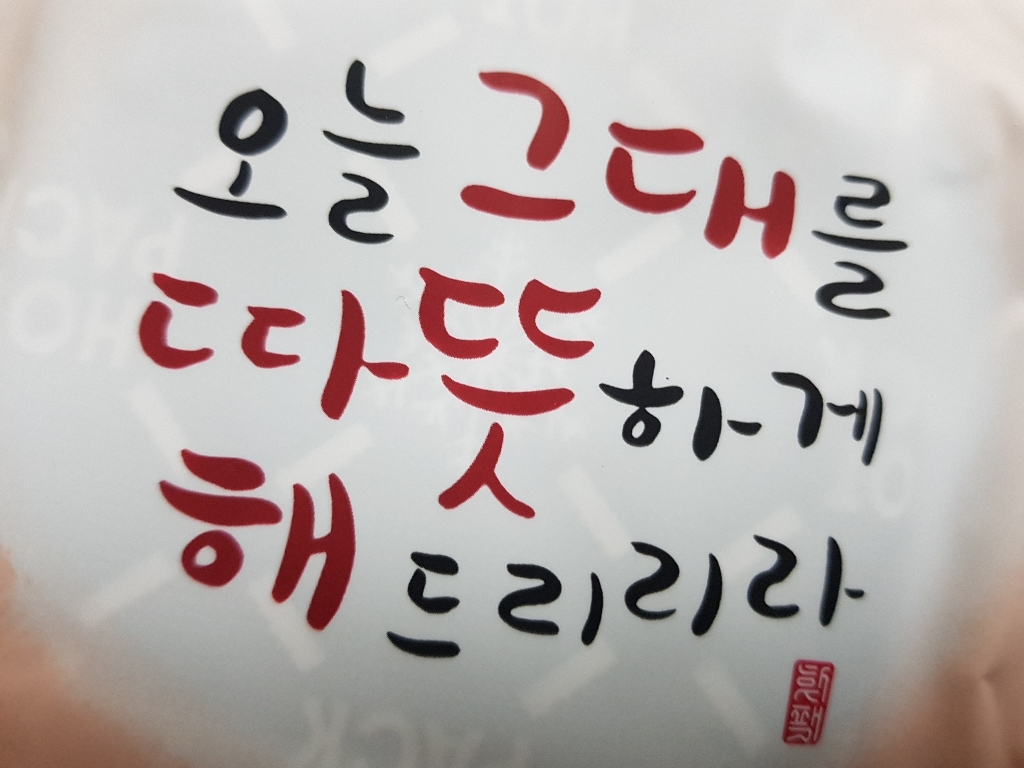 오늘 그대를
따뜻하게
해드리리라